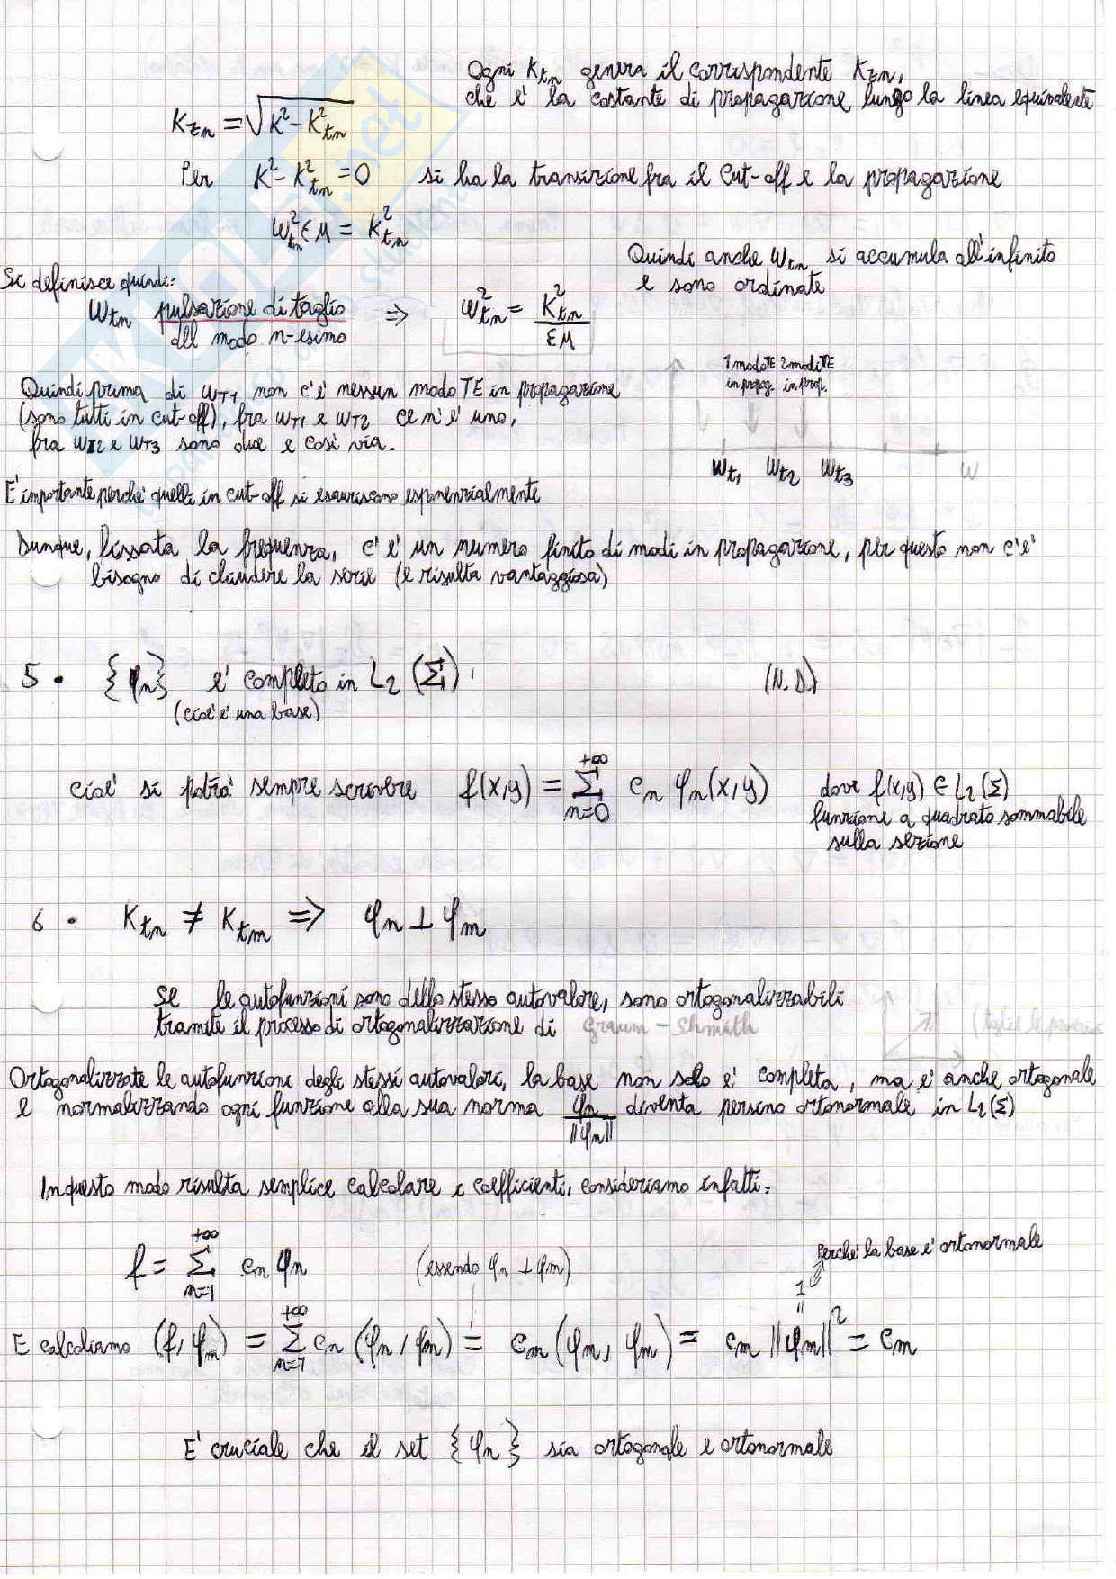 Ogni K_tn genera il corrispondente K_zn,
che e' la costante di propagazione lungo la linea equivalente
K_zn = √(K² - K²_tn)
Per K² - K²_tn = 0 si ha la transizione fra il cut-off e la propagazione
ω²_tn εμ = K²_tn
Quindi anche ω_tn si accumula all'infinito
e sono ordinate
Si definisce quindi:
ω_tn pulsazione di taglio ⇒ ω²_tn = K²_tn / εμ
del modo n-esimo
1 modo TE 2 modi TE
in propag. in prop.
Quindi prima di ω_T1 non c'e' nessun modo TE in propagazione
(sono tutti in cut-off), fra ω_T1 e ω_T2 ce n'e' uno,
fra ω_T2 e ω_T3 sono due e così via.
ω_t1 ω_t2 ω_t3 ω
E' importante perche' quelli in cut-off si esauriscono esponenzialmente
Dunque, fissata la frequenza, c'e' un numero finito di modi in propagazione, per questo non c'e'
bisogno di chiudere la serie (e risulta vantaggiosa)
5 • {φn} e' completo in L2 (Σ) (N.D.)
(cioe' e' una base)
cioe' si potra' sempre scrivere f(x,y) = Σ_{n=0}^{+∞} cn φn(x,y) dove f(x,y) ∈ L2(Σ)
funzioni a quadrato sommabile
sulla sezione
6 • K_tn ≠ K_tm ⇒ φn ⊥ φm
Se le autofunzioni sono dello stesso autovalore, sono ortogonalizzabili
tramite il processo di ortogonalizzazione di Graum - Shmath
Ortogonalizzate le autofunzioni degli stessi autovalori, la base non solo e' completa, ma e' anche ortogonale
e normalizzando ogni funzione alla sua norma φn / ||φn|| diventa persino ortonormale in L2(Σ)
In questo modo risulta semplice calcolare i coefficienti, consideriamo infatti:
perche' la base e' ortonormale
f = Σ_{n=1}^{+∞} cn φn (essendo φn ⊥ φm)
1
"
E calcoliamo (f, φm) = Σ_{n=1}^{+∞} cn (φn, φm) = cm (φm, φm) = cm ||φm||² = cm
E' cruciale che il set {φn} sia ortogonale e ortonormale